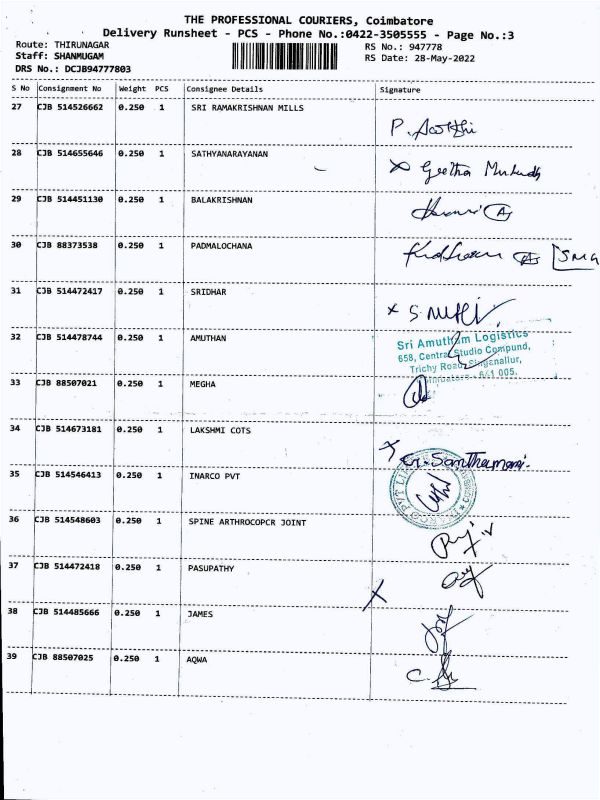 THE PROFESSIONAL COURIERS, Coimbatore
Delivery Runsheet - PCS - Phone No.:0422-3505555 - Page No.:3
Route: THIRUNAGAR
RS No.: 947778
Staff: SHANMUGAM
RS Date: 28-May-2022
DRS No.: DCJB94777803
S No Consignment No Weight PCS Consignee Details Signature
27 CJB 514526662 0.250 1 SRI RAMAKRISHNAN MILLS
28 CJB 514655646 0.250 1 SATHYANARAYANAN
x Geetha
29 CJB 514451130 0.250 1 BALAKRISHNAN
30 CJB 88373538 0.250 1 PADMALOCHANA
31 CJB 514472417 0.250 1 SRIDHAR
32 CJB 514478744 0.250 1 AMUTHAN
Sri Amutham Logistics
658, Central Studio Compund,
Trichy Road, Singanallur,
33 CJB 88507021 0.250 1 MEGHA
34 CJB 514673181 0.250 1 LAKSHMI COTS
35 CJB 514546413 0.250 1 INARCO PVT
36 CJB 514548603 0.250 1 SPINE ARTHROCOPCR JOINT
37 CJB 514472418 0.250 1 PASUPATHY
38 CJB 514485666 0.250 1 JAMES
39 CJB 88507025 0.250 1 AQWA